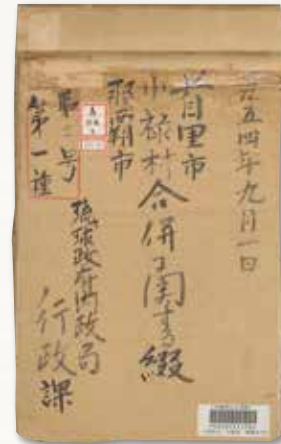 一九五四年九月一日
首里市
小禄村合併ニ関する書綴
那覇市
第二号
第一種
琉球政府内政局
行政課